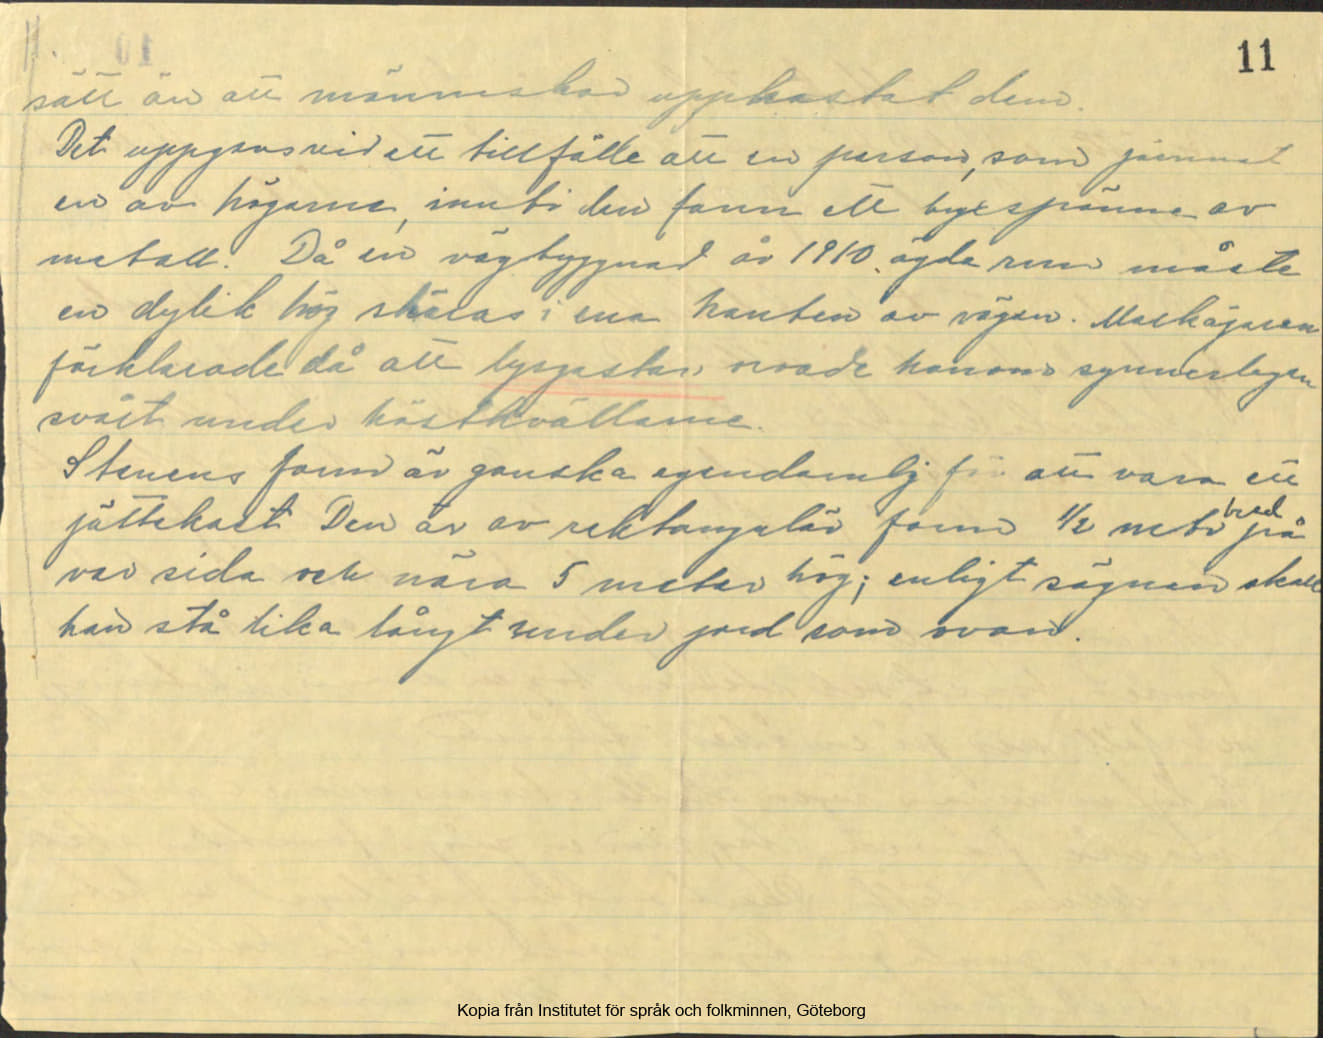 11
sätt än att människor uppkastat dem.
Det uppgavs vid ett tillfälle att en person, som jämnat
en av högarne, inuti den fann ett byxspänne av
metall. Då en vägbyggnad år 1910 ägde rum måste
en dylik hög skäras i ena kanten av vägen. Markägaren
förklarade då att lysgastar oroade honom synnerligen
svårt under höstkvällarne.
Stenens form är ganska egendomlig för att vara ett
jättekast. Den är av rektangulär form 1/2 meter bred på
var sida och nära 5 meter hög; enligt sägnen skall
han stå lika långt under jord som ovan.
Kopia från Institutet för språk och folkminnen, Göteborg